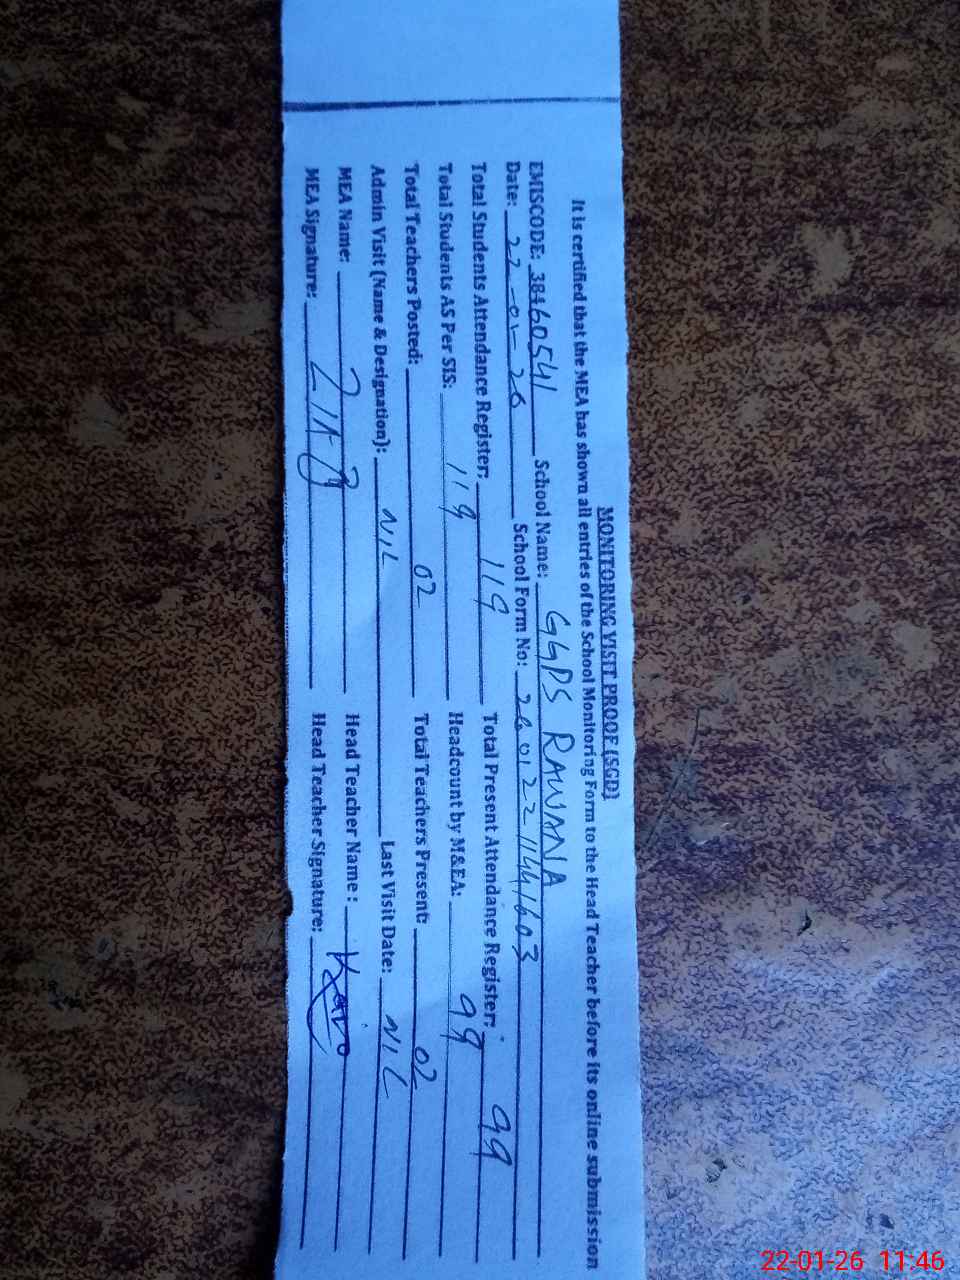 MONITORING VISIT PROOF (SGD)
It is certified that the MEA has shown all entries of the School Monitoring Form to the Head Teacher before its online submission
EMISCODE: 38460541 School Name: GGPS RAWANA
Date: 22-01-26 School Form No: 26012211441603
Total Students Attendance Register: 119 Total Present Attendance Register: 99
Total Students AS Per SIS: 119 Headcount by M&EA: 99
Total Teachers Posted: 02 Total Teachers Present: 02
Admin Visit (Name & Designation): NIL Last Visit Date: NIL
MEA Name: Head Teacher Name :
MEA Signature: Head Teacher Signature:
22-01-26 11:46